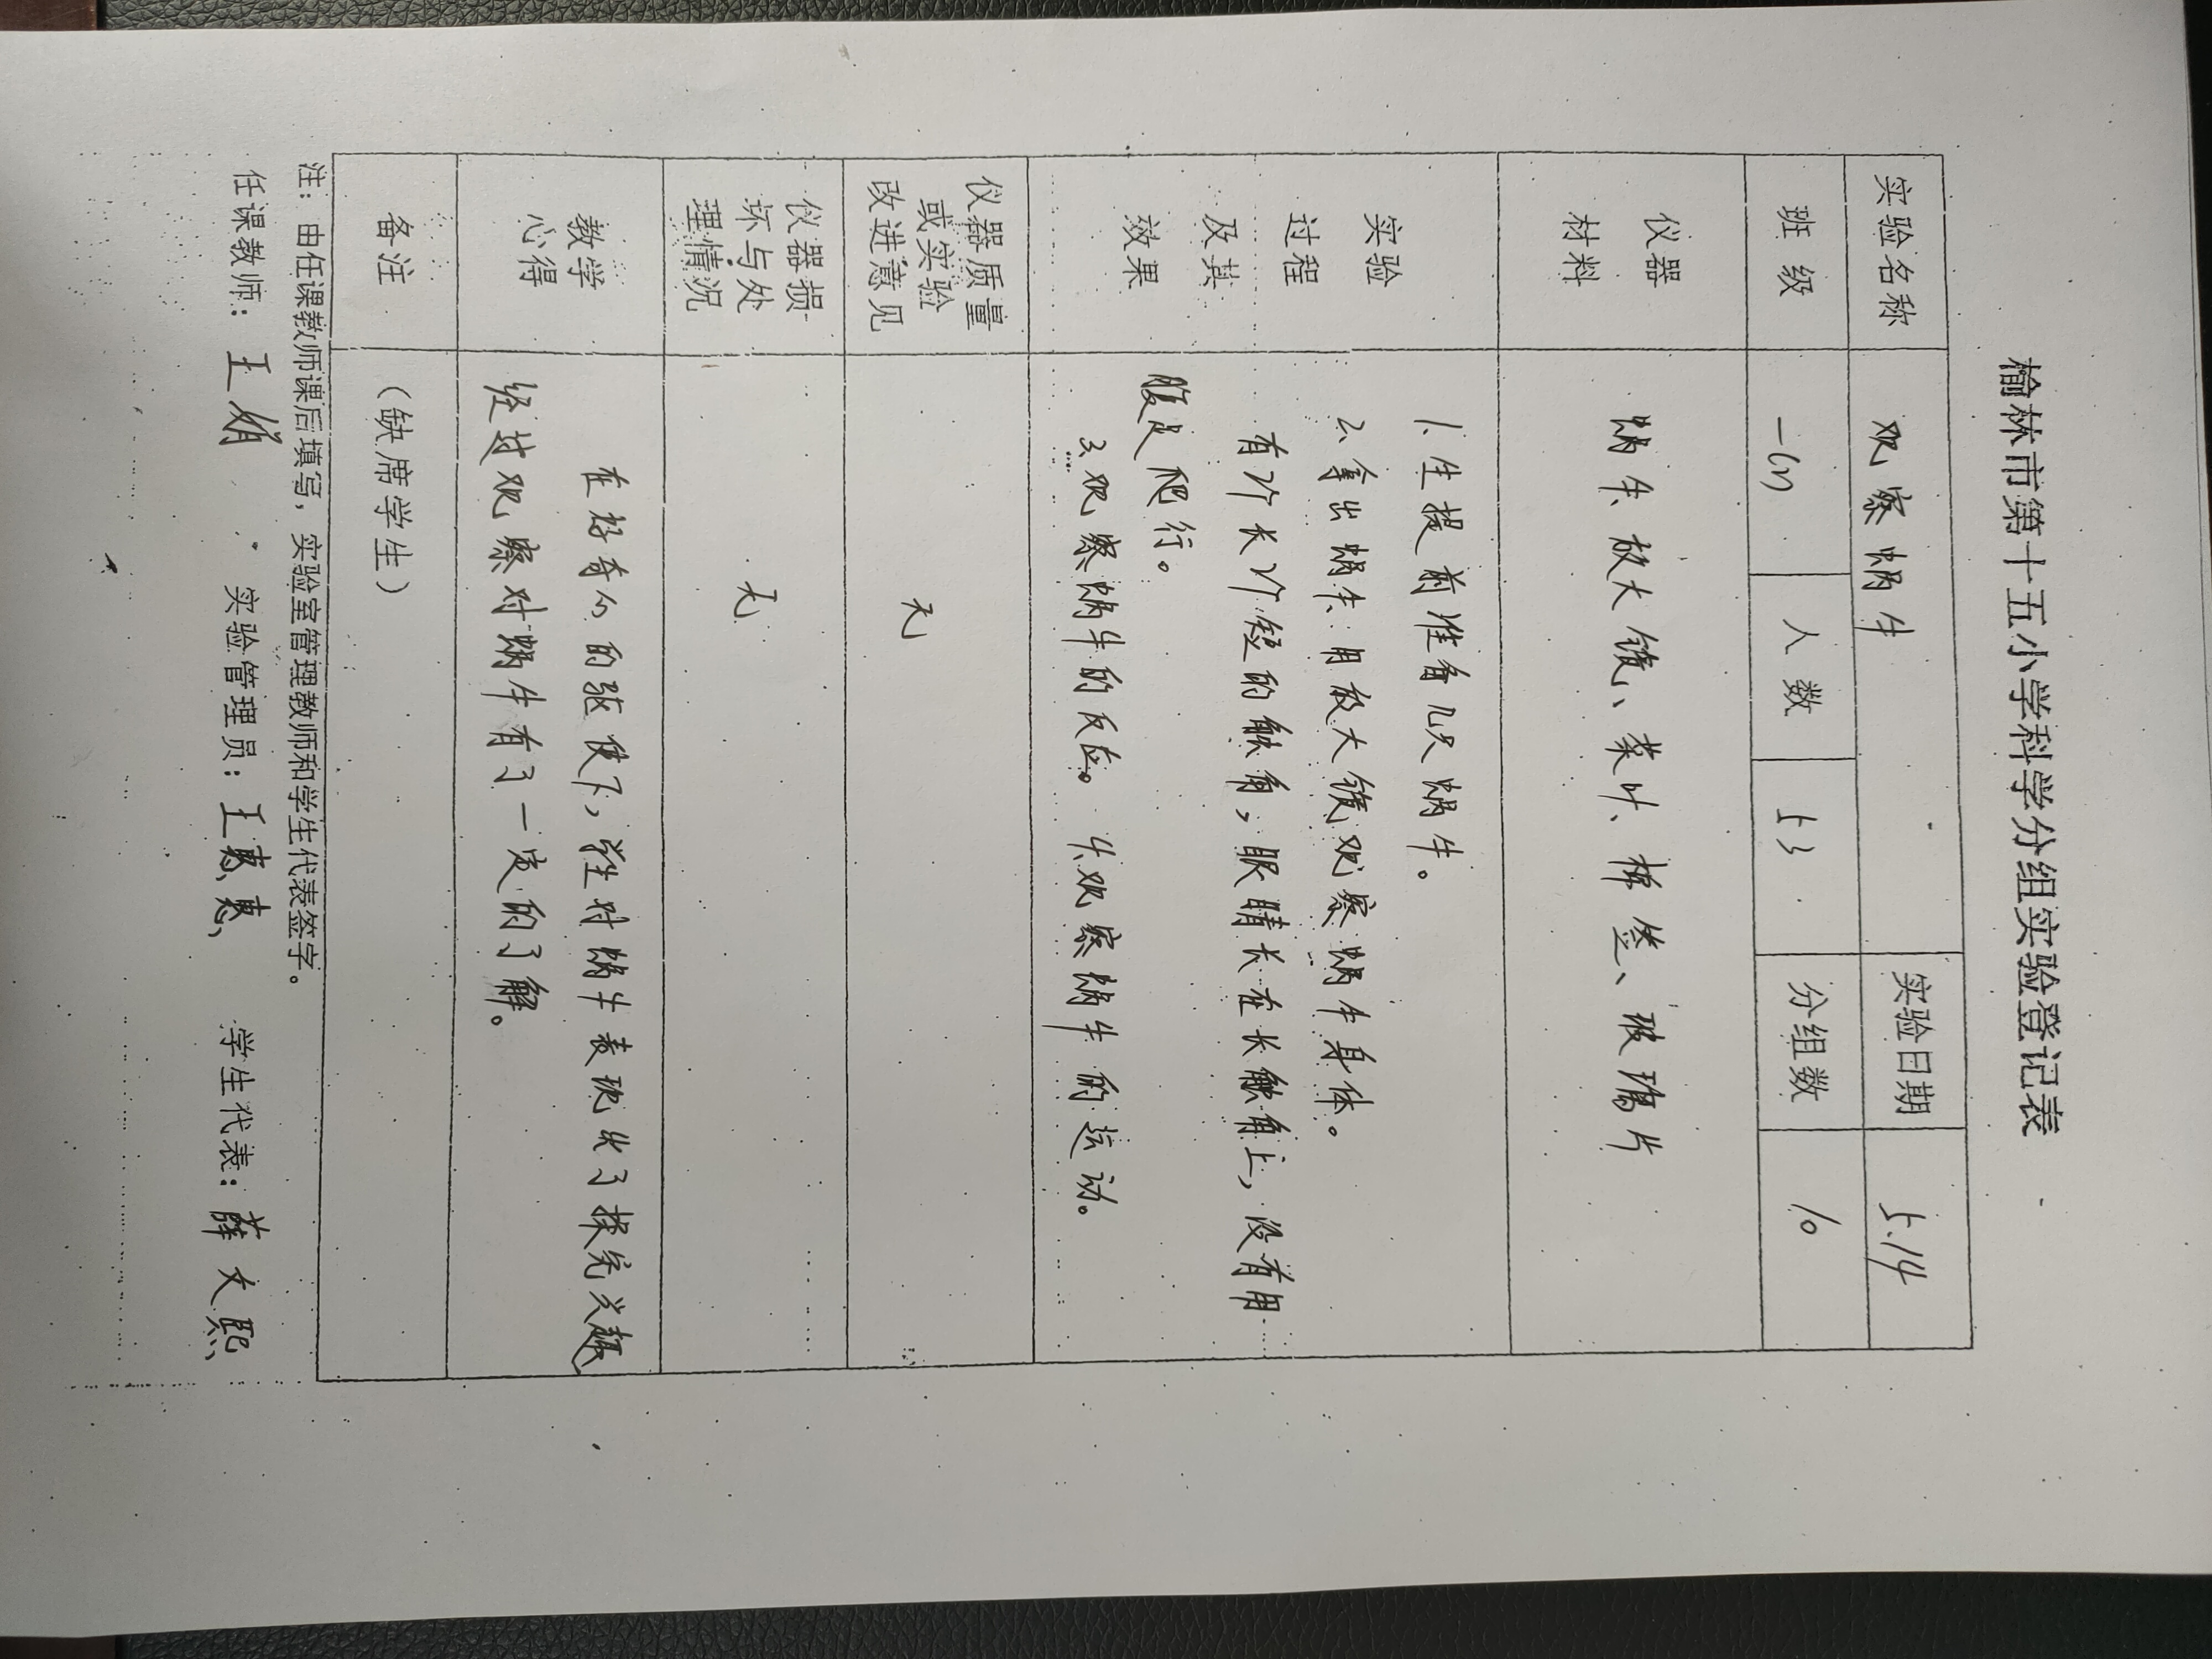 榆林市第十五小学科学分组实验登记表
实验名称 观察蜗牛 实验日期 5.14
班 级 一(7) 人 数 53 分组数 10
仪器
材料
蜗牛、放大镜、菜叶、棉签、玻璃片
实验
过程
及其
效果
1、生提前准备几只蜗牛。
2、拿出蜗牛,用放大镜观察蜗牛身体。
有2个长2个短的触角,眼睛长在长触角上,没有用
腹足爬行。
3、观察蜗牛的反应。 4、观察蜗牛的运动。
仪器质量
或实验
改进意见
无
仪器损
坏与处
理情况
无
教学
心得
在好奇心的驱使下,学生对蜗牛表现出了探究兴趣
经过观察对蜗牛有了一定的了解。
备注 (缺席学生)
注:由任课教师课后填写,实验室管理教师和学生代表签字。
任课教师:王娟 实验管理员:王惠惠 学生代表:薛文熙